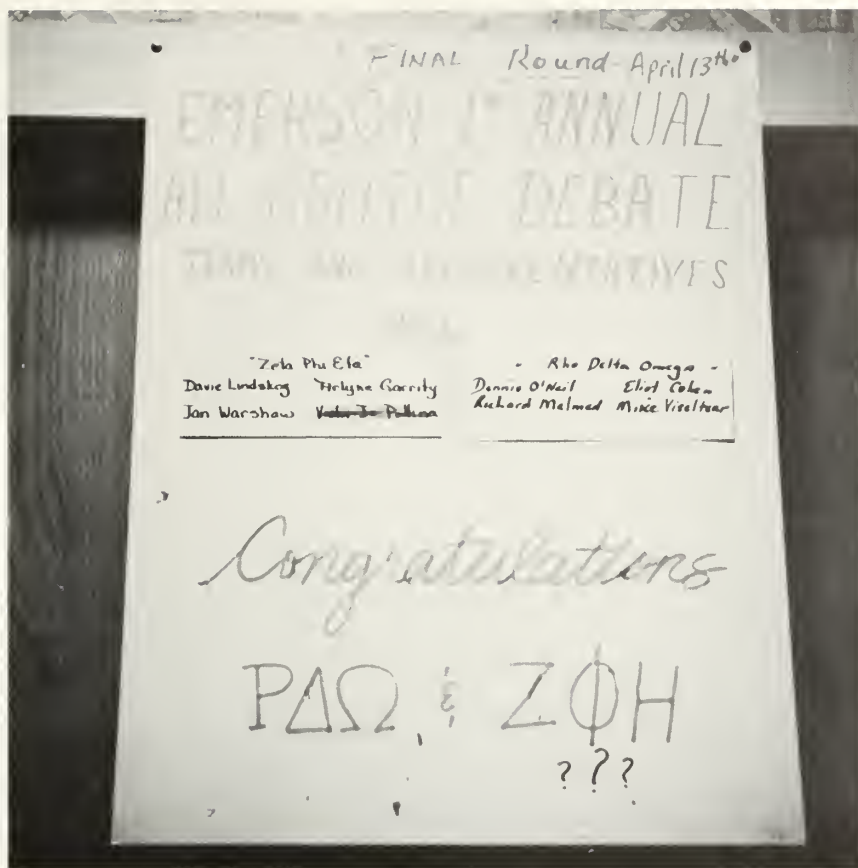 FINAL Round - April 13th.
EMERSON 1st ANNUAL
ALL COLLEGE DEBATE
TEAMS AND REPRESENTATIVES
"Zeta Phi Eta"
Davie Lindskog Arlyne Garrity
Jan Warshaw
- Rho Delta Omega -
Dennis O'Neil Eliot Cohen
Richard Melmed Mike Viseltear
Congratulations
ΡΔΩ & ΖΦΗ
???